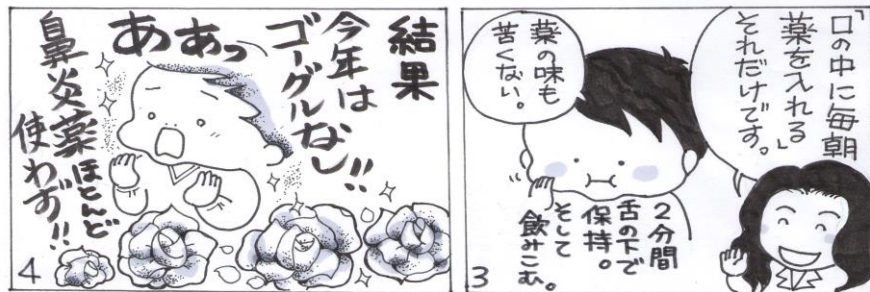 「口の中に毎朝
薬を入れる」
それだけです。
薬の味も
苦くない。
2分間
舌の下で
保持。
そして
飲みこむ。
3
結果
今年は
ゴーグルなし!!
ああっ
鼻炎薬ほとんど
使わず!!
4